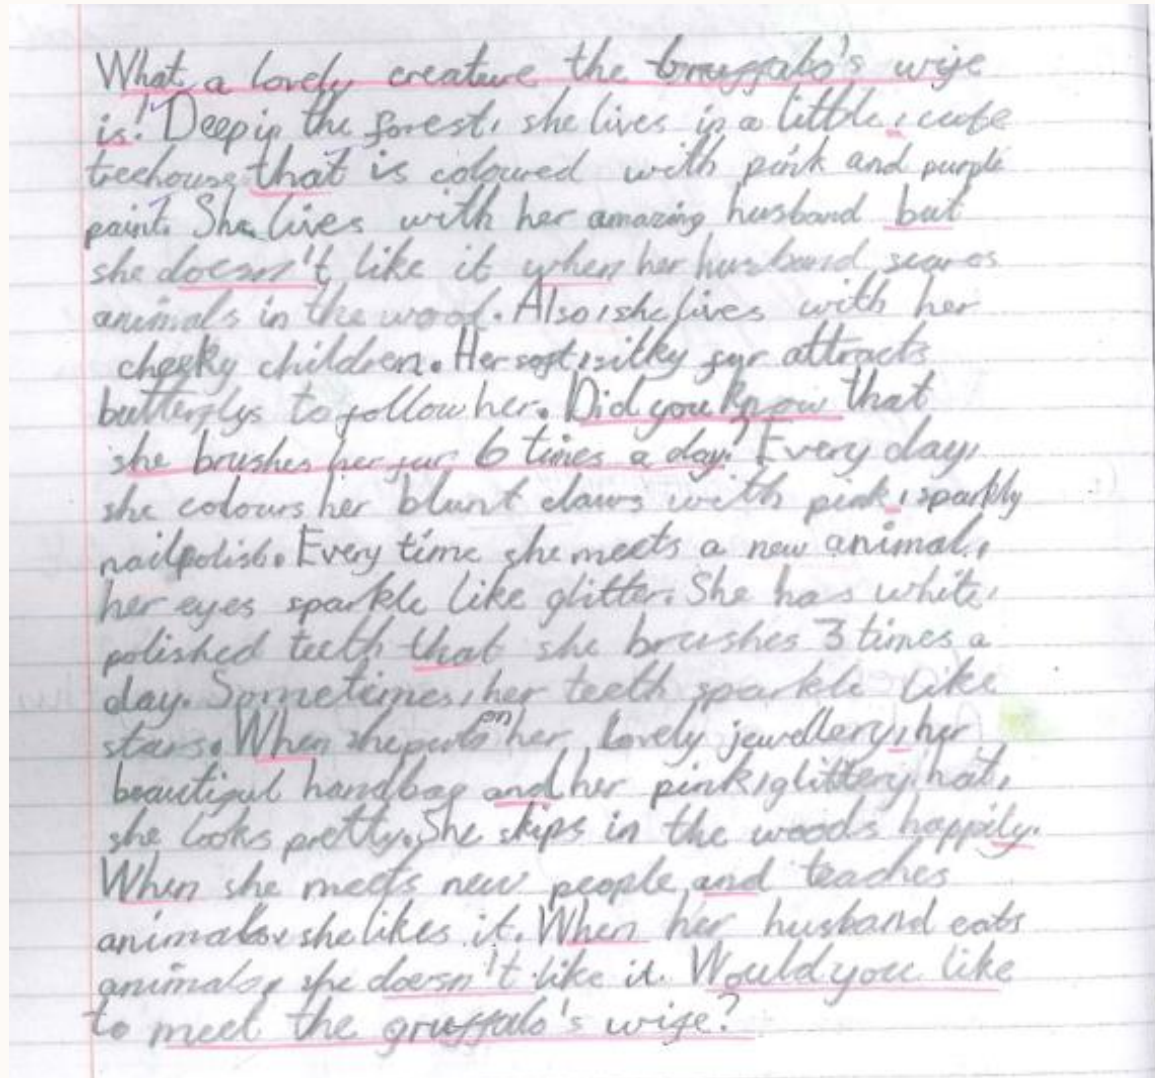 What a lovely creature the gruffalo's wife
is! Deep in the forest, she lives in a little, cute
treehouse that is coloured with pink and purple
paint. She lives with her amazing husband but
she doesn't like it when her husband scares
animals in the wood. Also, she lives with her
cheeky children. Her soft, silky fur attracts
butterflys to follow her. Did you know that
she brushes her fur 6 times a day? Every day,
she colours her blunt claws with pink, sparkly
nailpolish. Every time she meets a new animal,
her eyes sparkle like glitter. She has white,
polished teeth that she brushes 3 times a
day. Sometimes, her teeth sparkle like
stars. When she puts on her lovely jewellery, her
beautiful handbag and her pink, glittery hat,
she looks pretty. She skips in the woods happily.
When she meets new people and teaches
animals she likes it. When her husband eats
animals, she doesn't like it. Would you like
to meet the gruffalo's wife?